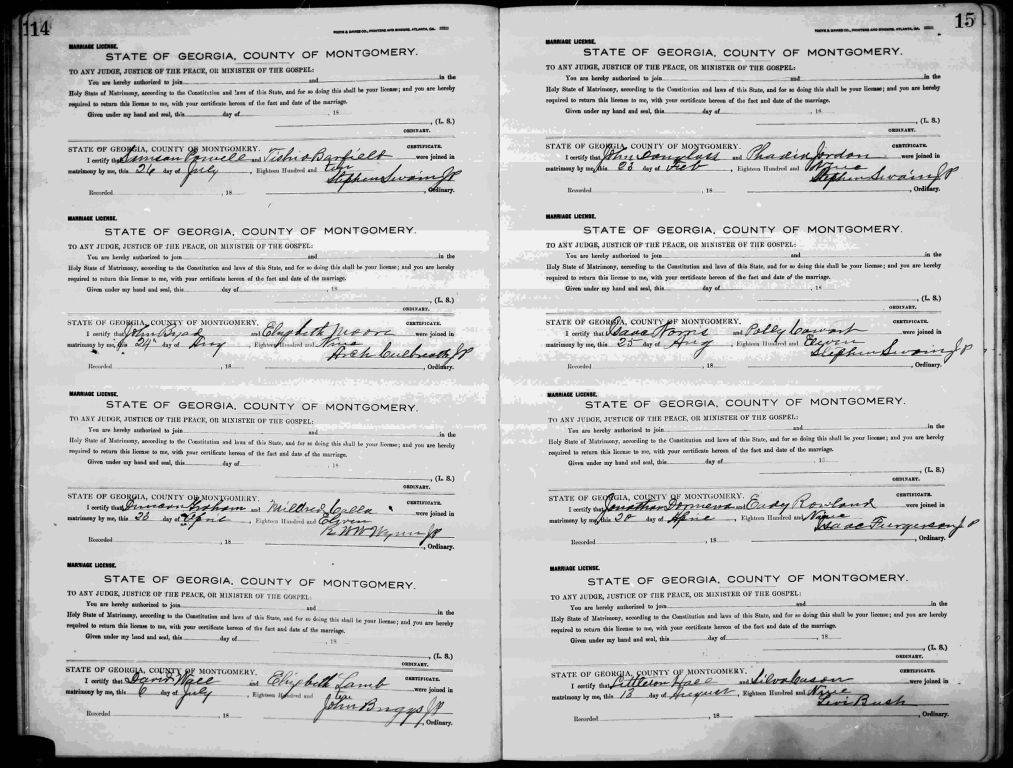 114
FOOTE & DAVIES CO., PRINTERS AND BINDERS, ATLANTA, GA.
MARRIAGE LICENSE.
STATE OF GEORGIA, COUNTY OF MONTGOMERY.
TO ANY JUDGE, JUSTICE OF THE PEACE, OR MINISTER OF THE GOSPEL:
You are hereby authorized to join and in the
Holy State of Matrimony, according to the Constitution and laws of this State, and for so doing this shall be your license; and you are hereby
required to return this license to me, with your certificate hereon of the fact and date of the marriage.
Given under my hand and seal, this day of , 18
, (L. S.)
ORDINARY.
STATE OF GEORGIA, COUNTY OF MONTGOMERY. CERTIFICATE.
I certify that and Barfield were joined in
matrimony by me, this 26 day of July , Eighteen Hundred and
Stephen Swain JP
Recorded , 18 , Ordinary.
MARRIAGE LICENSE.
STATE OF GEORGIA, COUNTY OF MONTGOMERY.
TO ANY JUDGE, JUSTICE OF THE PEACE, OR MINISTER OF THE GOSPEL:
You are hereby authorized to join and in the
Holy State of Matrimony, according to the Constitution and laws of this State, and for so doing this shall be your license; and you are hereby
required to return this license to me, with your certificate hereon of the fact and date of the marriage.
Given under my hand and seal, this day of , 18
, (L. S.)
ORDINARY.
STATE OF GEORGIA, COUNTY OF MONTGOMERY. CERTIFICATE.
I certify that John Byrd and Elizabeth Moore were joined in
matrimony by me, this 24 day of , Eighteen Hundred and Nine
Arch Culbreath JP
Recorded , 18 , Ordinary.
MARRIAGE LICENSE.
STATE OF GEORGIA, COUNTY OF MONTGOMERY.
TO ANY JUDGE, JUSTICE OF THE PEACE, OR MINISTER OF THE GOSPEL:
You are hereby authorized to join and in the
Holy State of Matrimony, according to the Constitution and laws of this State, and for so doing this shall be your license; and you are hereby
required to return this license to me, with your certificate hereon of the fact and date of the marriage.
Given under my hand and seal, this day of , 18
, (L. S.)
ORDINARY.
STATE OF GEORGIA, COUNTY OF MONTGOMERY. CERTIFICATE.
I certify that Duncan Graham and Mildred were joined in
matrimony by me, this 23 day of , Eighteen Hundred and Eleven
Wynn JP
Recorded , 18 , Ordinary.
MARRIAGE LICENSE.
STATE OF GEORGIA, COUNTY OF MONTGOMERY.
TO ANY JUDGE, JUSTICE OF THE PEACE, OR MINISTER OF THE GOSPEL:
You are hereby authorized to join and in the
Holy State of Matrimony, according to the Constitution and laws of this State, and for so doing this shall be your license; and you are hereby
required to return this license to me, with your certificate hereon of the fact and date of the marriage.
Given under my hand and seal, this day of , 18
, (L. S.)
ORDINARY.
STATE OF GEORGIA, COUNTY OF MONTGOMERY. CERTIFICATE.
I certify that David Wall and Elizabeth Lamb were joined in
matrimony by me, this 6 day of July , Eighteen Hundred and
John Briggs JP
Recorded , 18 , Ordinary.
15
FOOTE & DAVIES CO., PRINTERS AND BINDERS, ATLANTA, GA.
MARRIAGE LICENSE.
STATE OF GEORGIA, COUNTY OF MONTGOMERY.
TO ANY JUDGE, JUSTICE OF THE PEACE, OR MINISTER OF THE GOSPEL:
You are hereby authorized to join and in the
Holy State of Matrimony, according to the Constitution and laws of this State, and for so doing this shall be your license; and you are hereby
required to return this license to me, with your certificate hereon of the fact and date of the marriage.
Given under my hand and seal, this day of , 18
, (L. S.)
ORDINARY.
STATE OF GEORGIA, COUNTY OF MONTGOMERY. CERTIFICATE.
I certify that John Douglass and Jordon were joined in
matrimony by me, this 23 day of Feb , Eighteen Hundred and
Stephen Swain JP
Recorded , 18 , Ordinary.
MARRIAGE LICENSE.
STATE OF GEORGIA, COUNTY OF MONTGOMERY.
TO ANY JUDGE, JUSTICE OF THE PEACE, OR MINISTER OF THE GOSPEL:
You are hereby authorized to join and in the
Holy State of Matrimony, according to the Constitution and laws of this State, and for so doing this shall be your license; and you are hereby
required to return this license to me, with your certificate hereon of the fact and date of the marriage.
Given under my hand and seal, this day of , 18
, (L. S.)
ORDINARY.
STATE OF GEORGIA, COUNTY OF MONTGOMERY. CERTIFICATE.
I certify that Isaac Norris and Polly Cowart were joined in
matrimony by me, this 25 day of Aug , Eighteen Hundred and
Stephen Swain JP
Recorded , 18 , Ordinary.
MARRIAGE LICENSE.
STATE OF GEORGIA, COUNTY OF MONTGOMERY.
TO ANY JUDGE, JUSTICE OF THE PEACE, OR MINISTER OF THE GOSPEL:
You are hereby authorized to join and in the
Holy State of Matrimony, according to the Constitution and laws of this State, and for so doing this shall be your license; and you are hereby
required to return this license to me, with your certificate hereon of the fact and date of the marriage.
Given under my hand and seal, this day of , 18
, (L. S.)
ORDINARY.
STATE OF GEORGIA, COUNTY OF MONTGOMERY. CERTIFICATE.
I certify that Jonathan and Rowland were joined in
matrimony by me, this day of , Eighteen Hundred and Nine
Isaac Furgerson JP
Recorded , 18 , Ordinary.
MARRIAGE LICENSE.
STATE OF GEORGIA, COUNTY OF MONTGOMERY.
TO ANY JUDGE, JUSTICE OF THE PEACE, OR MINISTER OF THE GOSPEL:
You are hereby authorized to join and in the
Holy State of Matrimony, according to the Constitution and laws of this State, and for so doing this shall be your license; and you are hereby
required to return this license to me, with your certificate hereon of the fact and date of the marriage.
Given under my hand and seal, this day of , 18
, (L. S.)
ORDINARY.
STATE OF GEORGIA, COUNTY OF MONTGOMERY. CERTIFICATE.
I certify that Littleton and were joined in
matrimony by me, this 13 day of August , Eighteen Hundred and Nine
Levi Bush
Recorded , 18 , Ordinary.